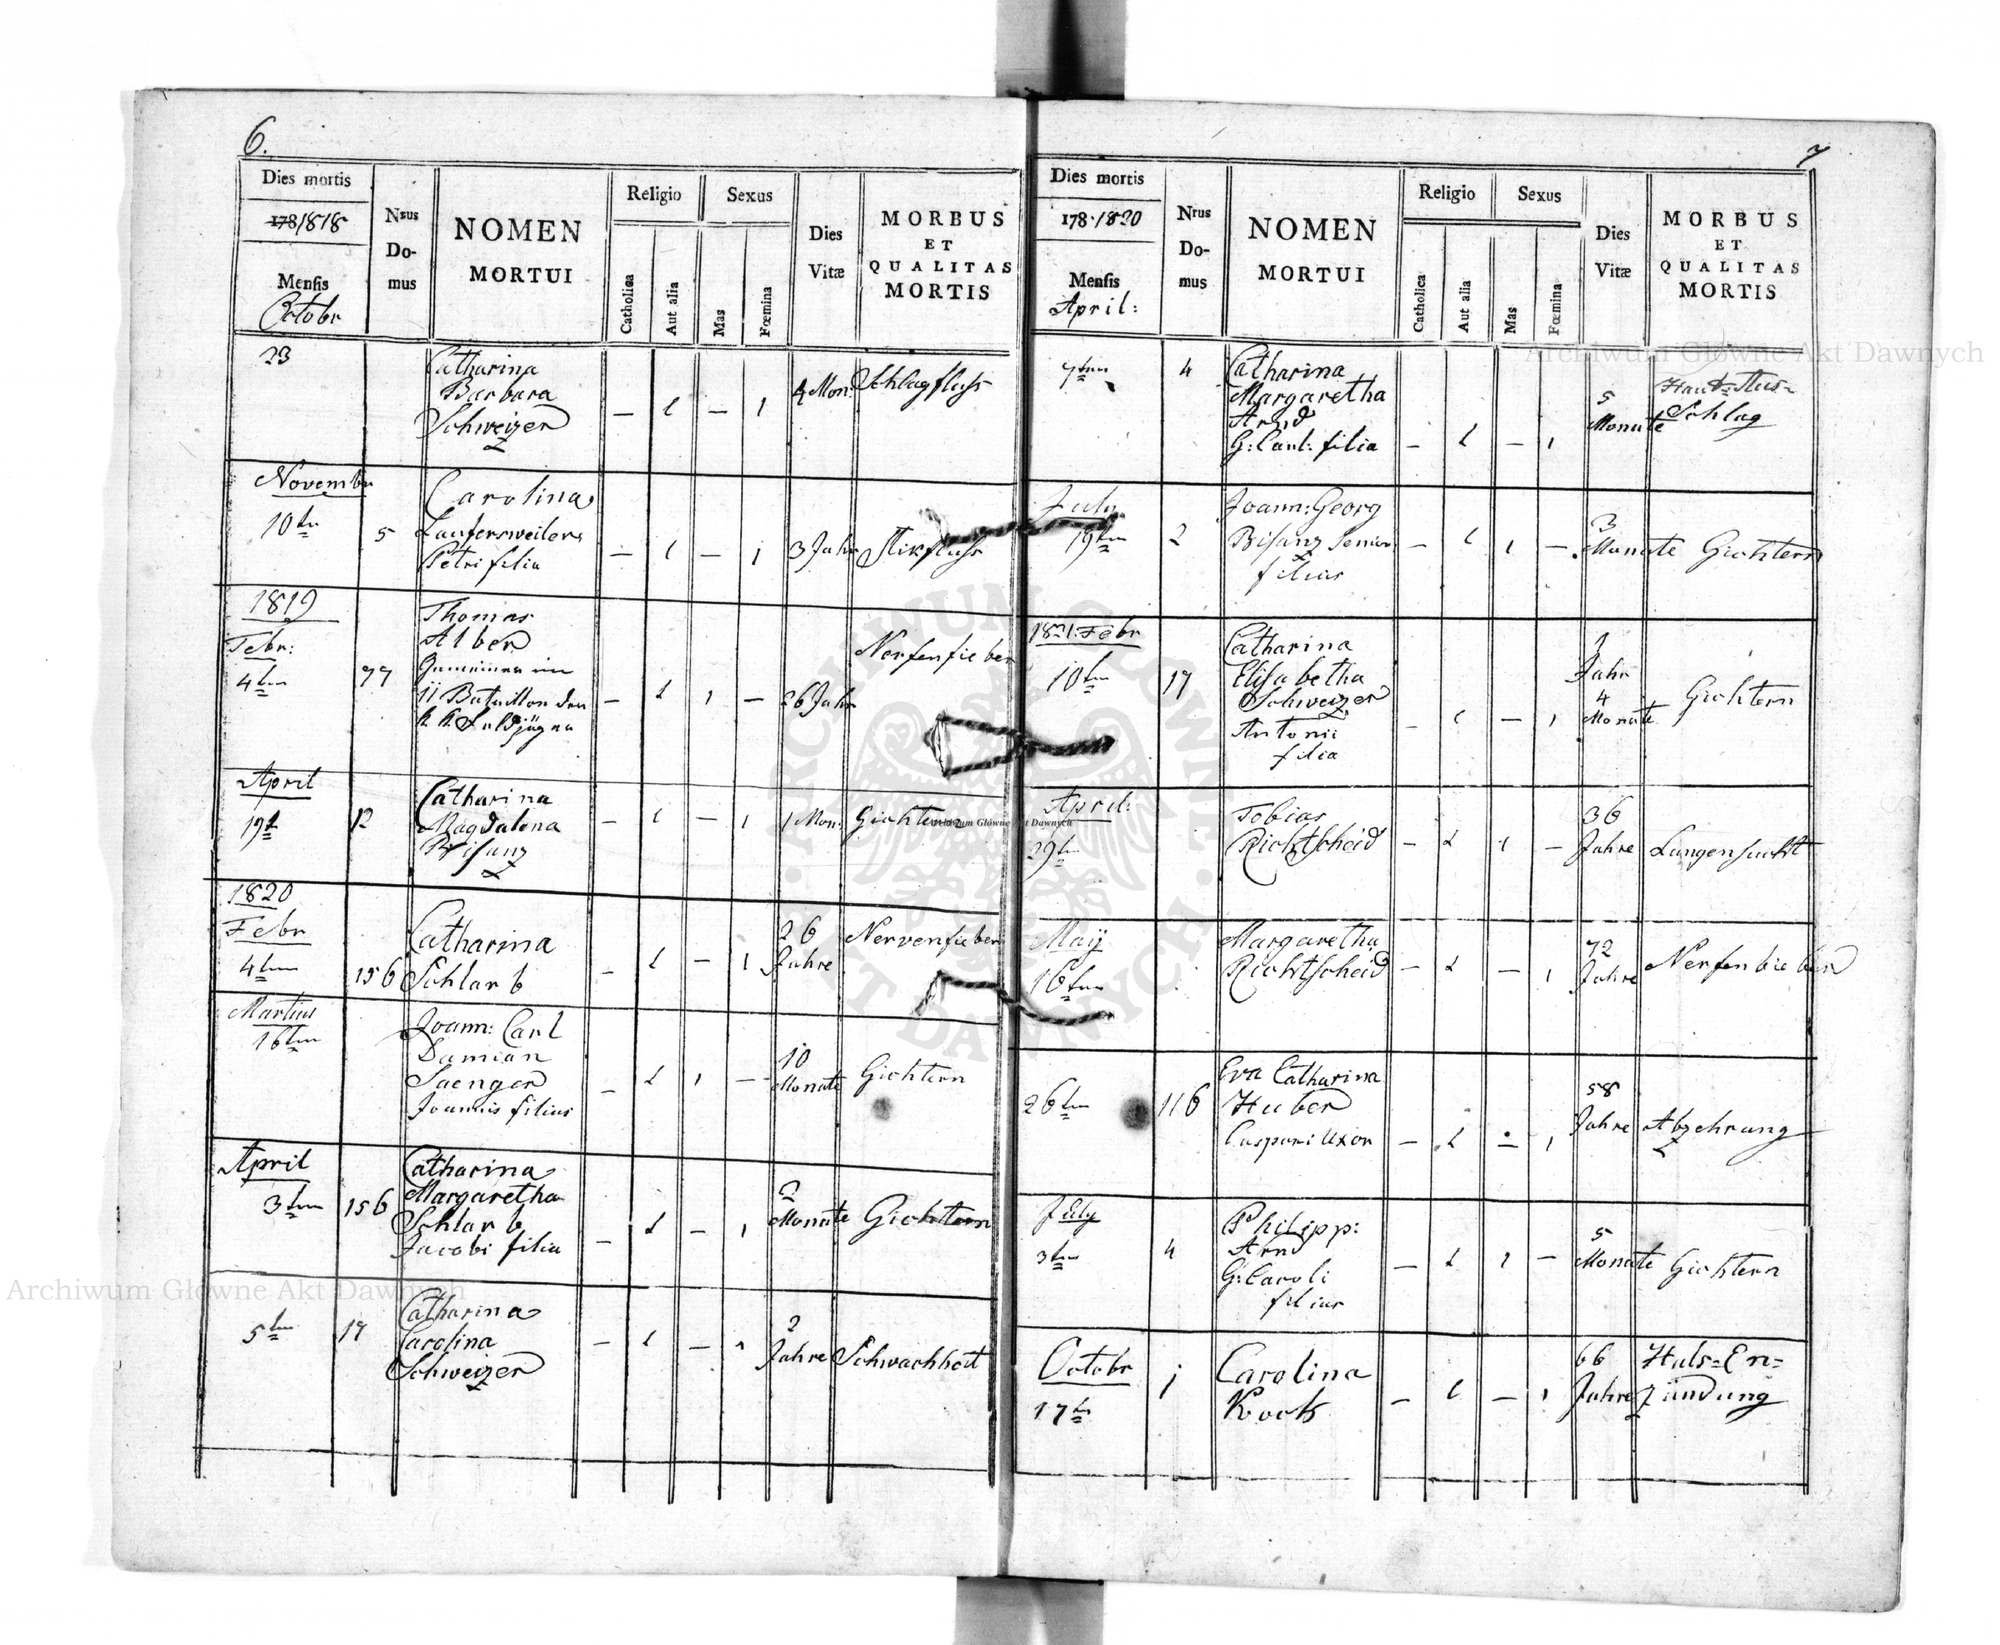 6.
Dies mortis
178/1818
Mensis
Octobr
Nrus
Do-
mus
NOMEN
MORTUI
Religio
Catholica
Aut alia
Sexus
Mas
Fœmina
Dies
Vitæ
MORBUS
ET
QUALITAS
MORTIS
23
Catharina
Barbara
Schweizer
– 1 – 1
4 Mon:
Schlagfluss
Novembr
10ten
5
Carolina
Laufersweiler
Petri filia
– 1 – 1
3 Jahr
Stikfluss
1819
Febr:
4ten
77
Thomas
Alber
Gemeiner im
11 Bataillon der
k k Feldjäger
– 1 1 –
26 Jahr
Nerfenfieber
April
19t
12
Catharina
Magdalena
Bisanz
– 1 – 1
1 Mon:
Gichtern
1820
Febr
4ten
156
Catharina
Schlarb
– 1 – 1
26
Jahre
Nervenfieber
Martius
16ten
Joann: Carl
Damian
Saenger
Joannis filius
– 1 1 –
10
Monate
Gichtern
April
3ten
156
Catharina
Margaretha
Schlarb
Jacobi filia
– 1 – 1
2
Monate
Gichtern
5ten
17
Catharina
Carolina
Schweizer
– 1 – 1
2
Jahre
Schwachheit
7
Dies mortis
178·1820
Mensis
April:
Nrus
Do-
mus
NOMEN
MORTUI
Religio
Catholica
Aut alia
Sexus
Mas
Fœmina
Dies
Vitæ
MORBUS
ET
QUALITAS
MORTIS
7ten
4
Catharina
Margaretha
Arnd
G: Carl: filia
– 1 – 1
5
Monate
Haut-Aus-
Schlag
July
19ten
2
Joann: Georg
Bisanz Senior
filius
– 1 1 –
3
Monate
Gichtern
1821: Febr
10ten
17
Catharina
Elisabetha
Schweizer
Antonii
filia
– 1 – 1
1
Jahr
4
Monate
Gichtern
April:
29ten
Tobias
Richtscheid
– 1 1 –
36
Jahre
Lungensucht
Maÿ
16ten
Margaretha
Richtscheid
– 1 – 1
72
Jahre
Nerfenbieber
26ten
116
Eva Catharina
Huber
Caspari Uxor
– 1 – 1
58
Jahre
Abzehrung
July
3ten
4
Philipp:
Arnd
G: Caroli
filius
– 1 1 –
5
Monate
Gichtern
Octobr
17ten
1
Carolina
Koch
– 1 – 1
66
Jahre
Hals=En=
zündung
Archiwum Główne Akt Dawnych
Archiwum Główne Akt Dawnych
Archiwum Główne Akt Dawnych
ARCHIWUM GŁÓWNE · AKT DAWNYCH ·